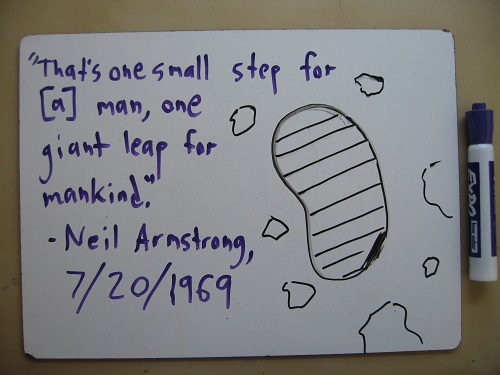 "That's one small step for
[a] man, one
giant leap for
mankind."
- Neil Armstrong,
7/20/1969
EXPO